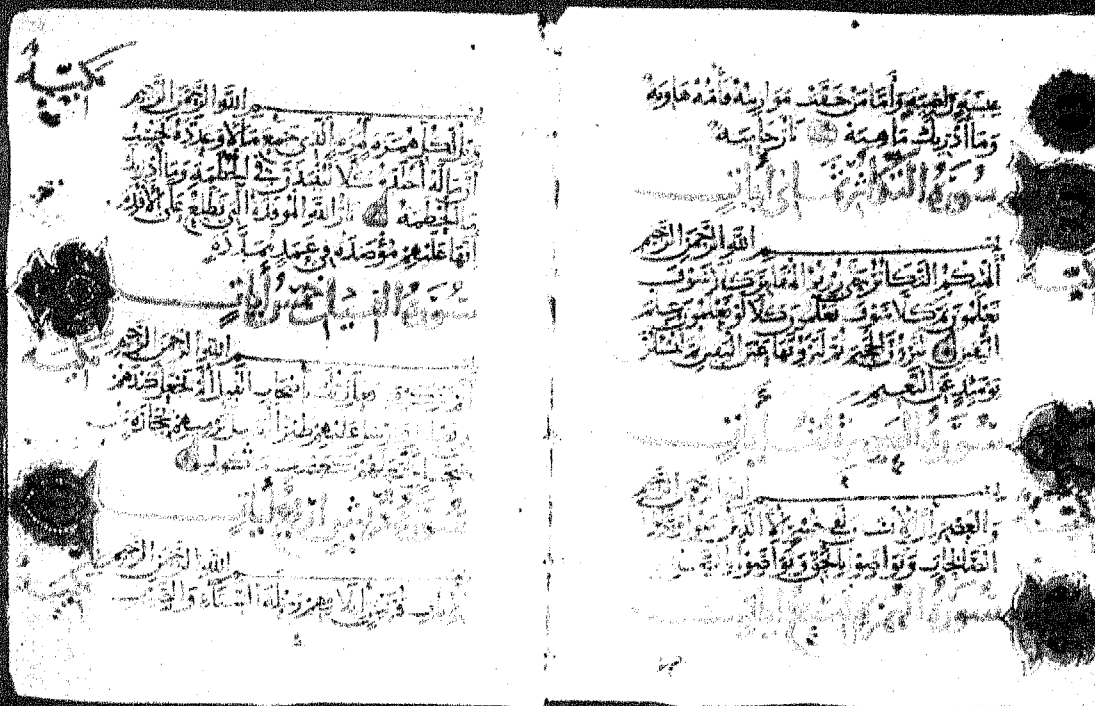 عيشة راضية وأما من خفت موازينه فأمه هاوية
وما أدريك ما هيه نار حامية
سورة التكاثر ثماني آيات
بسم الله الرحمن الرحيم
ألهكم التكاثر حتى زرتم المقابر كلا سوف
تعلمون ثم كلا سوف تعلمون كلا لو تعلمون علم
اليقين لترون الجحيم ثم لترونها عين اليقين ثم لتسئلن
يومئذ عن النعيم
سورة العصر ثلث آيات
بسم الله الرحمن الرحيم
والعصر إن الانسن لفي خسر إلا الذين آمنوا وعملوا
الصالحات وتواصوا بالحق وتواصوا بالصبر
سورة الهمزة تسع آيات
مكية
بسم الله الرحمن الرحيم
ويل لكل همزة لمزة الذي جمع مالا وعدده يحسب
أن ماله أخلده كلا لينبذن في الحطمة وما أدريك
ما الحطمة نار الله الموقدة التي تطلع على الأفئدة
إنها عليهم مؤصدة في عمد ممددة
سورة الفيل خمس آيات
مكية
بسم الله الرحمن الرحيم
ألم تر كيف فعل ربك بأصحاب الفيل ألم يجعل كيدهم
في تضليل وأرسل عليهم طيرا أبابيل ترميهم بحجارة من
سجيل فجعلهم كعصف مأكول
سورة قريش أربع آيات
بسم الله الرحمن الرحيم
لإيلاف قريش إيلافهم رحلة الشتاء والصيف